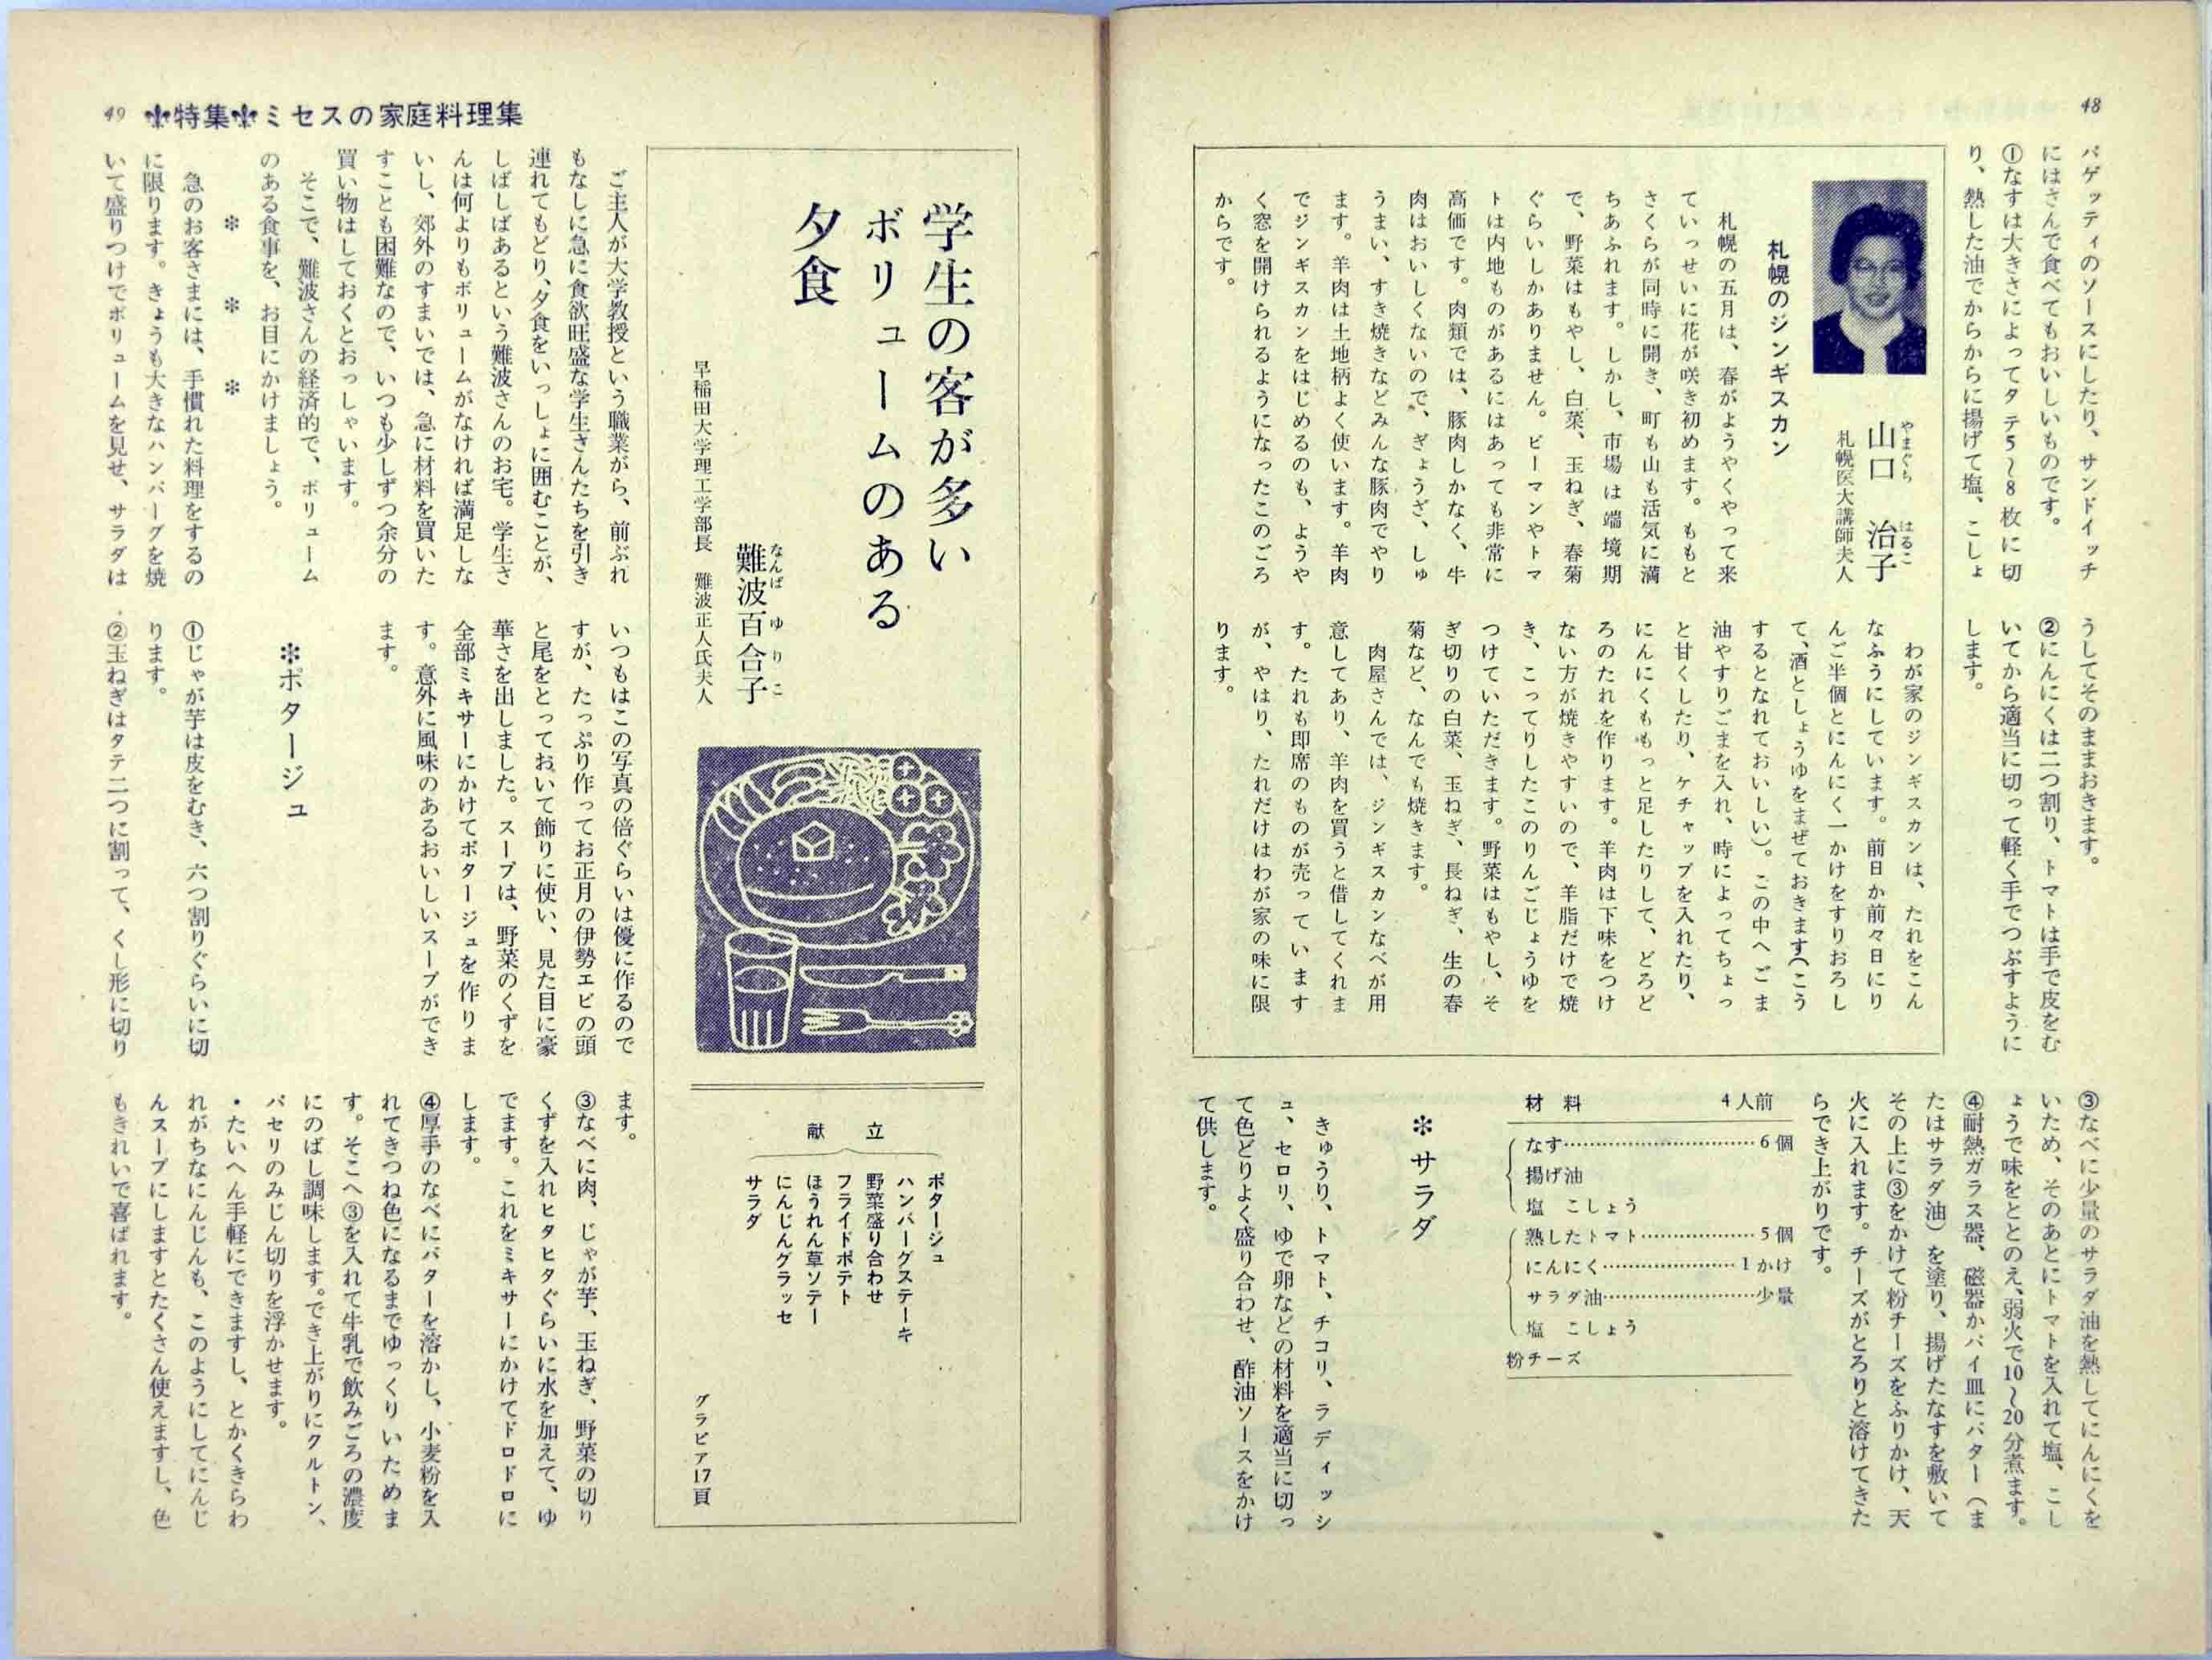 48
パゲッティのソースにしたり、サンドイッチ
にはさんで食べてもおいしいものです。
①なすは大きさによってタテ5〜8枚に切
り、熱した油でからからに揚げて塩、こしょ
うしてそのままおきます。
②にんにくは二つ割り、トマトは手で皮をむ
いてから適当に切って軽く手でつぶすように
します。
③なべに少量のサラダ油を熱してにんにくを
いため、そのあとにトマトを入れて塩、こし
ょうで味をととのえ、弱火で10〜20分煮ます。
④耐熱ガラス器、磁器かパイ皿にバター（ま
たはサラダ油）を塗り、揚げたなすを敷いて
その上に③をかけて粉チーズをふりかけ、天
火に入れます。チーズがとろりと溶けてきた
らでき上がりです。
材料 4人前
なす……6個
揚げ油
塩 こしょう
熟したトマト……5個
にんにく……1かけ
サラダ油……少量
塩 こしょう
粉チーズ
＊サラダ
きゅうり、トマト、チコリ、ラディッシ
ュ、セロリ、ゆで卵などの材料を適当に切っ
て色どりよく盛り合わせ、酢油ソースをかけ
て供します。
やまぐち はるこ
山口 治子
札幌医大講師夫人
札幌のジンギスカン
札幌の五月は、春がようやくやって来
ていっせいに花が咲き初めます。ももと
さくらが同時に開き、町も山も活気に満
ちあふれます。しかし、市場は端境期
で、野菜はもやし、白菜、玉ねぎ、春菊
ぐらいしかありません。ピーマンやトマ
トは内地ものがあるにはあっても非常に
高価です。肉類では、豚肉しかなく、牛
肉はおいしくないので、ぎょうざ、しゅ
うまい、すき焼きなどみんな豚肉でやり
ます。羊肉は土地柄よく使います。羊肉
でジンギスカンをはじめるのも、ようや
く窓を開けられるようになったこのごろ
からです。
わが家のジンギスカンは、たれをこん
なふうにしています。前日か前々日にり
んご半個とにんにく一かけをすりおろし
て、酒としょうゆをまぜておきます（こう
するとなれておいしい）。この中へごま
油やすりごまを入れ、時によってちょっ
と甘くしたり、ケチャップを入れたり、
にんにくももっと足したりして、どろど
ろのたれを作ります。羊肉は下味をつけ
ない方が焼きやすいので、羊脂だけで焼
き、こってりしたこのりんごじょうゆを
つけていただきます。野菜はもやし、そ
ぎ切りの白菜、玉ねぎ、長ねぎ、生の春
菊など、なんでも焼きます。
肉屋さんでは、ジンギスカンなべが用
意してあり、羊肉を買うと借してくれま
す。たれも即席のものが売っています
が、やはり、たれだけはわが家の味に限
ります。
49 特集 ミセスの家庭料理集
学生の客が多い
ボリュームのある
夕食
なんば ゆりこ
難波百合子
早稲田大学理工学部長 難波正人氏夫人
献立
ポタージュ
ハンバーグステーキ
野菜盛り合わせ
フライドポテト
ほうれん草ソテー
にんじんグラッセ
サラダ
グラビア17頁
ご主人が大学教授という職業がら、前ぶれ
もなしに急に食欲旺盛な学生さんたちを引き
連れてもどり、夕食をいっしょに囲むことが、
しばしばあるという難波さんのお宅。学生さ
んは何よりもボリュームがなければ満足しな
いし、郊外のすまいでは、急に材料を買いた
すことも困難なので、いつも少しずつ余分の
買い物はしておくとおっしゃいます。
そこで、難波さんの経済的で、ボリューム
のある食事を、お目にかけましょう。
＊ ＊ ＊
急のお客さまには、手慣れた料理をするの
に限ります。きょうも大きなハンバーグを焼
いて盛りつけでボリュームを見せ、サラダは
いつもはこの写真の倍ぐらいは優に作るので
すが、たっぷり作ってお正月の伊勢エビの頭
と尾をとっておいて飾りに使い、見た目に豪
華さを出しました。スープは、野菜のくずを
全部ミキサーにかけてポタージュを作りま
す。意外に風味のあるおいしいスープができ
ます。
＊ポタージュ
①じゃが芋は皮をむき、六つ割りぐらいに切
ります。
②玉ねぎはタテ二つに割って、くし形に切り
ます。
③なべに肉、じゃが芋、玉ねぎ、野菜の切り
くずを入れヒタヒタぐらいに水を加えて、ゆ
でます。これをミキサーにかけてドロドロに
します。
④厚手のなべにバターを溶かし、小麦粉を入
れてきつね色になるまでゆっくりいためま
す。そこへ③を入れて牛乳で飲みごろの濃度
にのばし調味します。でき上がりにクルトン、
パセリのみじん切りを浮かせます。
・たいへん手軽にできますし、とかくきらわ
れがちなにんじんも、このようにしてにんじ
んスープにしますとたくさん使えますし、色
もきれいで喜ばれます。